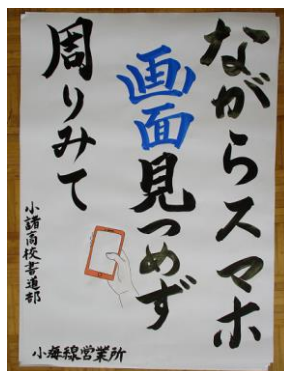 ながらスマホ
画面見つめず
周りみて
小諸高校書道部
小海線営業所